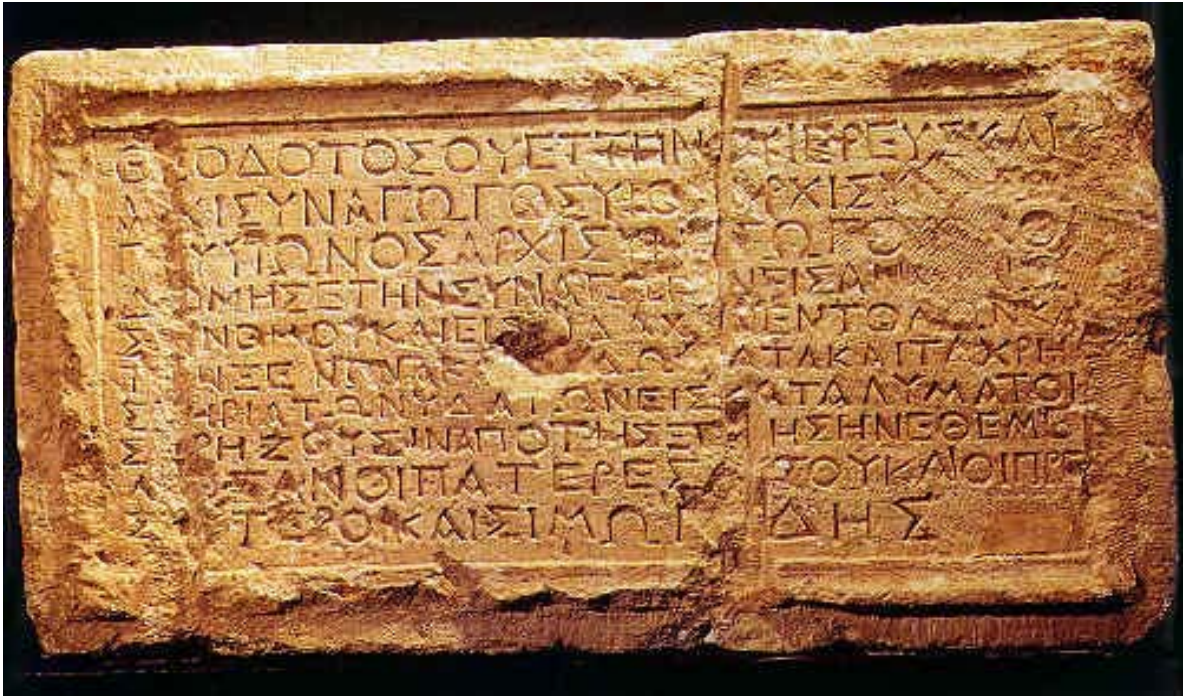 ΘΕΟΔΟΤΟΣ ΟΥΕΤΤΗΝΟΥ ΙΕΡΕΥΣ ΚΑΙ
ΑΡΧΙΣΥΝΑΓΩΓΟΣ ΥΙΟΣ
ΥΙΩΝΟΣ ΑΡΧΙΣΥΝΑΓΩΓΟΥ
ΔΟΜΗΣΕ ΤΗΝ ΣΥΝΑΓΩΓΗΝ ΕΙΣ
ΝΟΜΟΥ ΚΑΙ ΕΙΣ ΔΙΔΑΧΗΝ ΕΝΤΟΛΩΝ ΚΑΙ
ΞΕΝΩΝΑ ΚΑΙ ΤΑ ΔΩΜΑΤΑ ΚΑΙ ΤΑ ΧΡΗ
ΤΗΡΙΑ ΤΩΝ ΥΔΑΤΩΝ ΕΙΣ ΚΑΤΑΛΥΜΑ ΤΟΙ
ΧΡΗΖΟΥΣΙΝ ΑΠΟ ΤΗΣ ΞΕΝΗΣ ΗΝ ΕΘΕΜΕ
ΣΑΝ ΟΙ ΠΑΤΕΡΕΣ ΑΥΤΟΥ ΚΑΙ ΟΙ ΠΡΕ
ΤΕΡΟΙ ΚΑΙ ΣΙΜΩΝΙΔΗΣ